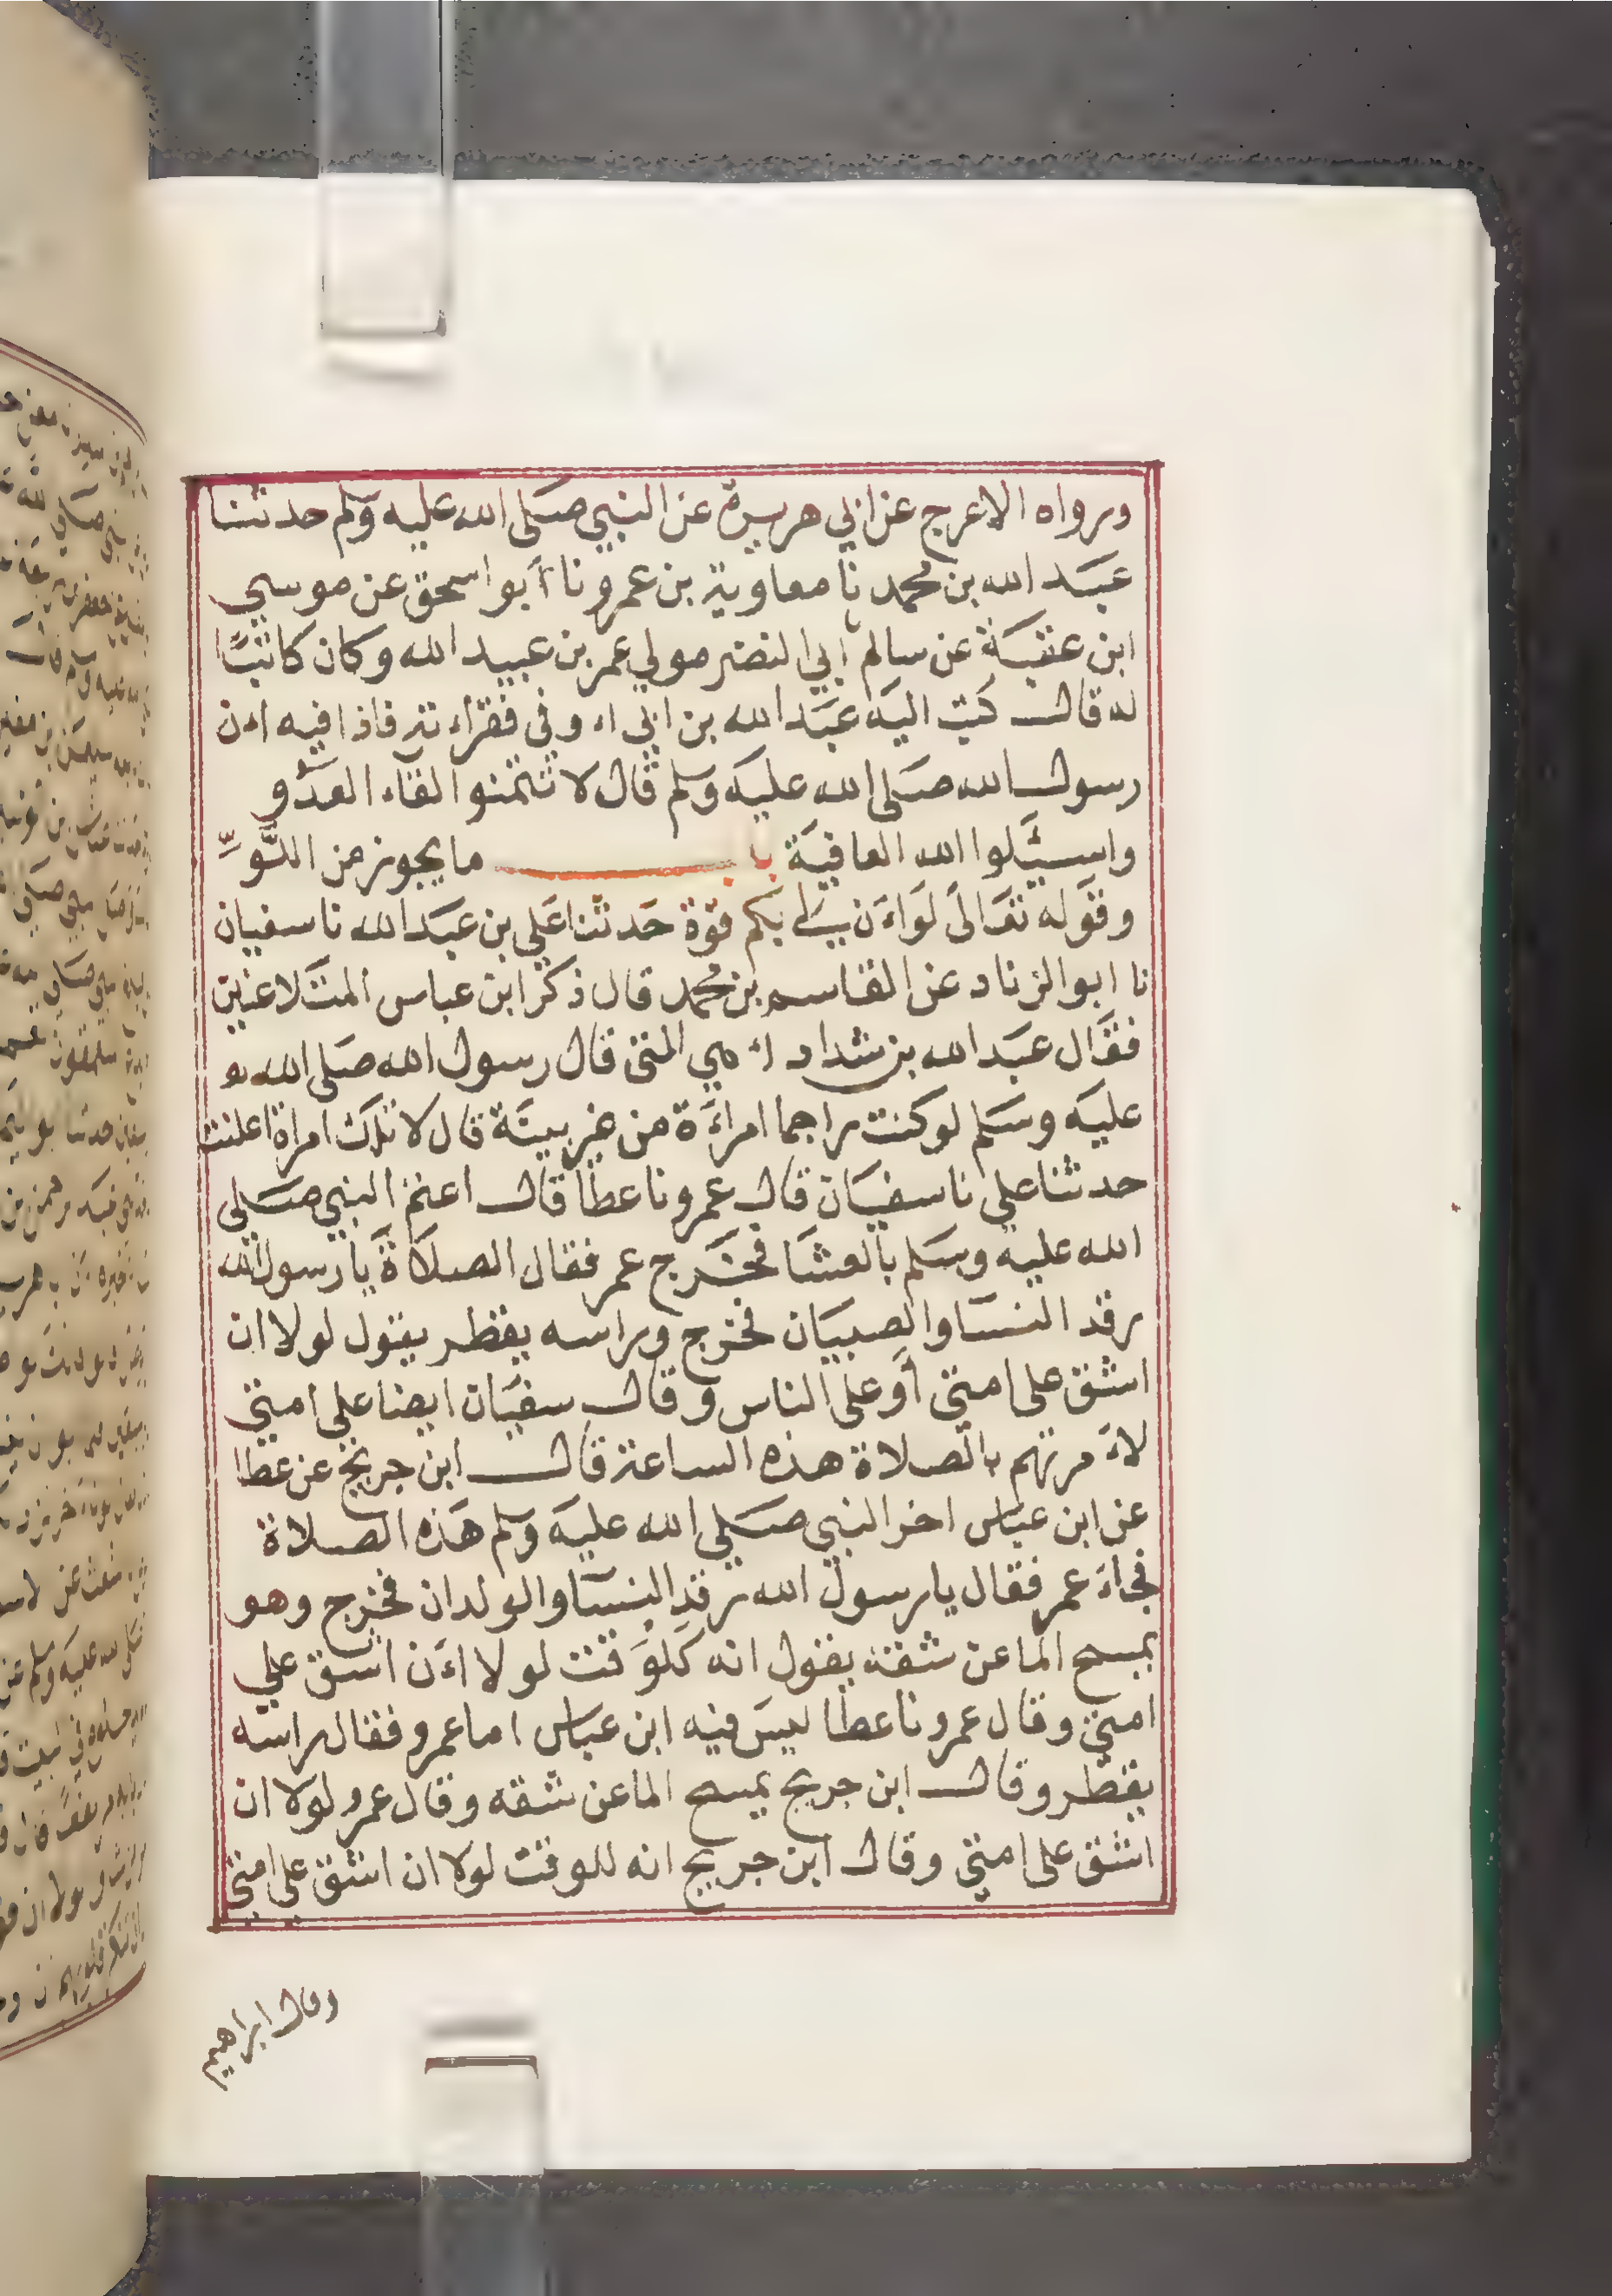 ورواه الاعرج عن ابي هريرة عن النبي صلى الله عليه وسلم حدثنا
عبد الله بن محمد نا معاوية بن عمرو نا أبو اسحق عن موسي
ابن عقبة عن سالم ابي النضر مولي عمر بن عبيد الله وكان كاتبًا
له قال كتب اليه عبد الله بن ابي اءوفي فقراءته فاذا فيه اءن
رسول الله صلى الله عليه وسلم قال لا تتمنوا لقاء العدو
واسيئلوا الله العافية باب ما يجوز من اللَّوِّ
وقوله تعالى لواءن لي بكم قوة حدثنا علي بن عبد الله نا سفيان
نا ابو الزناد عن القاسم بن محمد قال ذكر ابن عباس المتلاعنين
فقال عبد الله بن شداد اءهي التي قال رسول الله صلى الله
عليه وسلم لو كنت راجما امراءة من غير بينة قال لا تلك امراة اعلنت
حدثنا علي نا سفيان قال عمرو نا عطا قال اعتم النبي صلي
الله عليه وسلم بالعشا فخرج عمر فقال الصلاة يا رسول الله
رقد النسا والصبيان فخرج وراسه يقطر يقول لولا ان
اشق على امتي أو على الناس وقال سفيان ايضا علي امتي
لاءمرتهم بالصلاة هذه الساعة قال ابن جريج عن عطا
عن ابن عباس اخر النبي صلي الله عليه وسلم هذه الصلاة
فجاء عمر فقال يا رسول الله رقد النسا والولدان فخرج وهو
يمسح الما عن شقه يقول انه للوقت لولا اءن اشق علي
امتي وقال عمرو نا عطا ليس فيه ابن عباس اما عمرو فقال راسه
يقطر وقال ابن جريج يمسح الما عن شقه وقال عمرو لولا ان
اشق على امتي وقال ابن جريج انه للوقت لولا ان اشق علي امتي
وقال ابراهيم